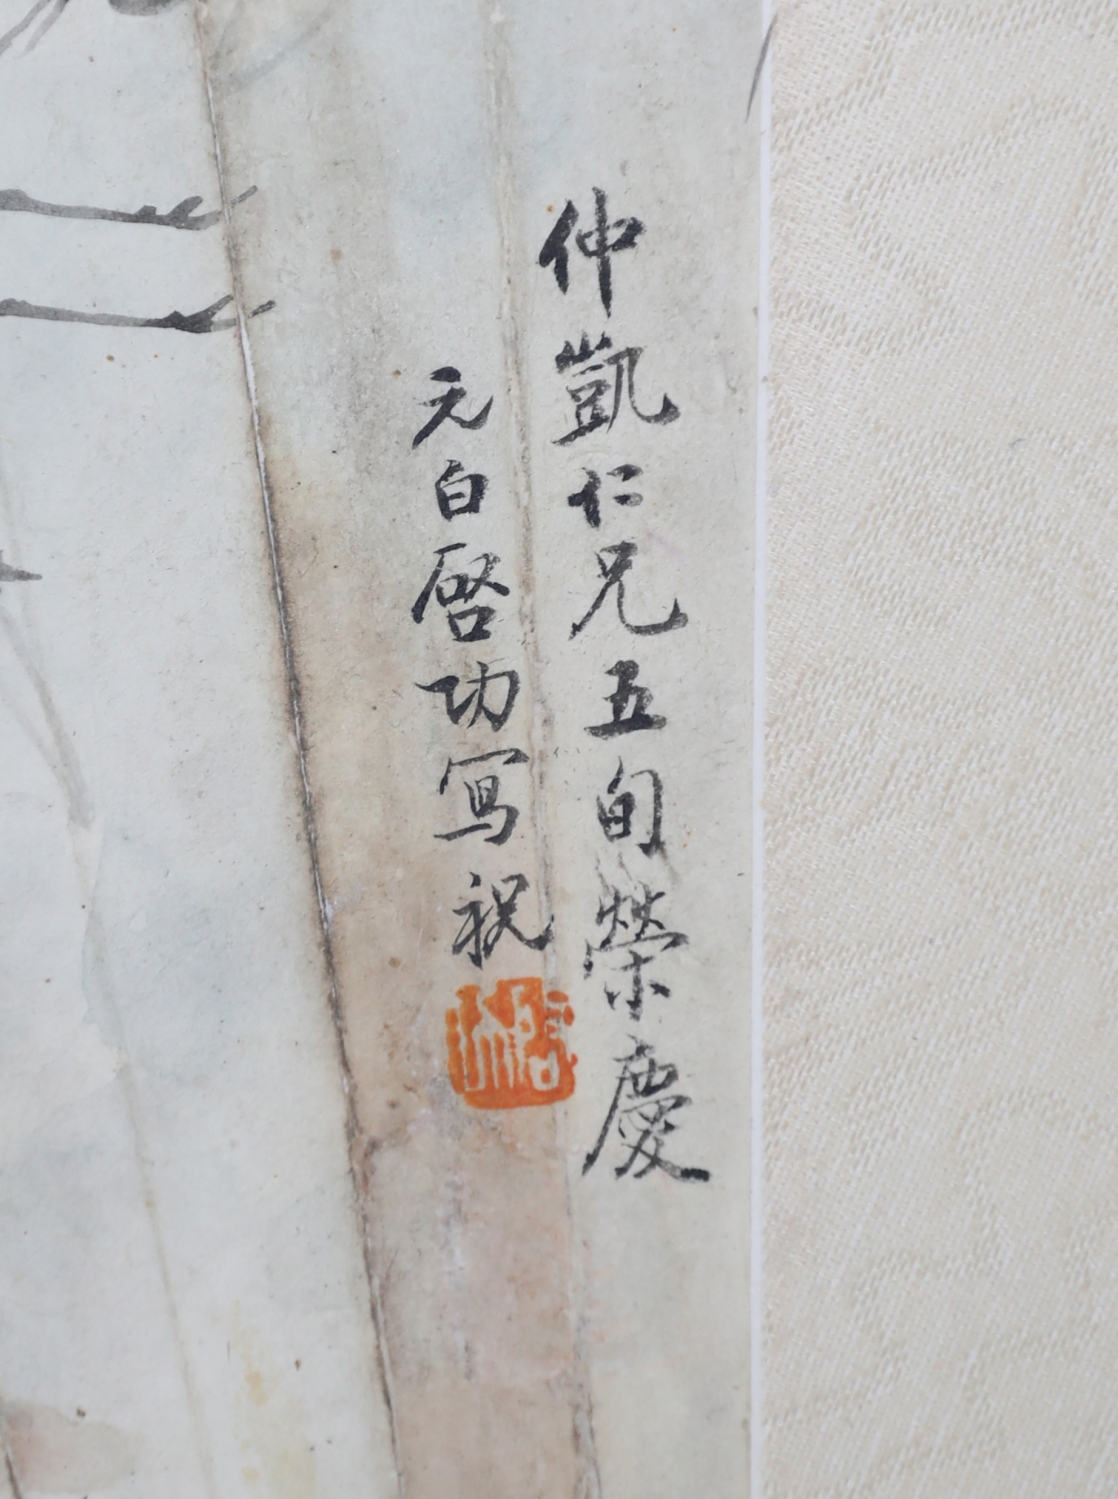 仲凱仁兄五旬榮慶
元白啓功寫祝